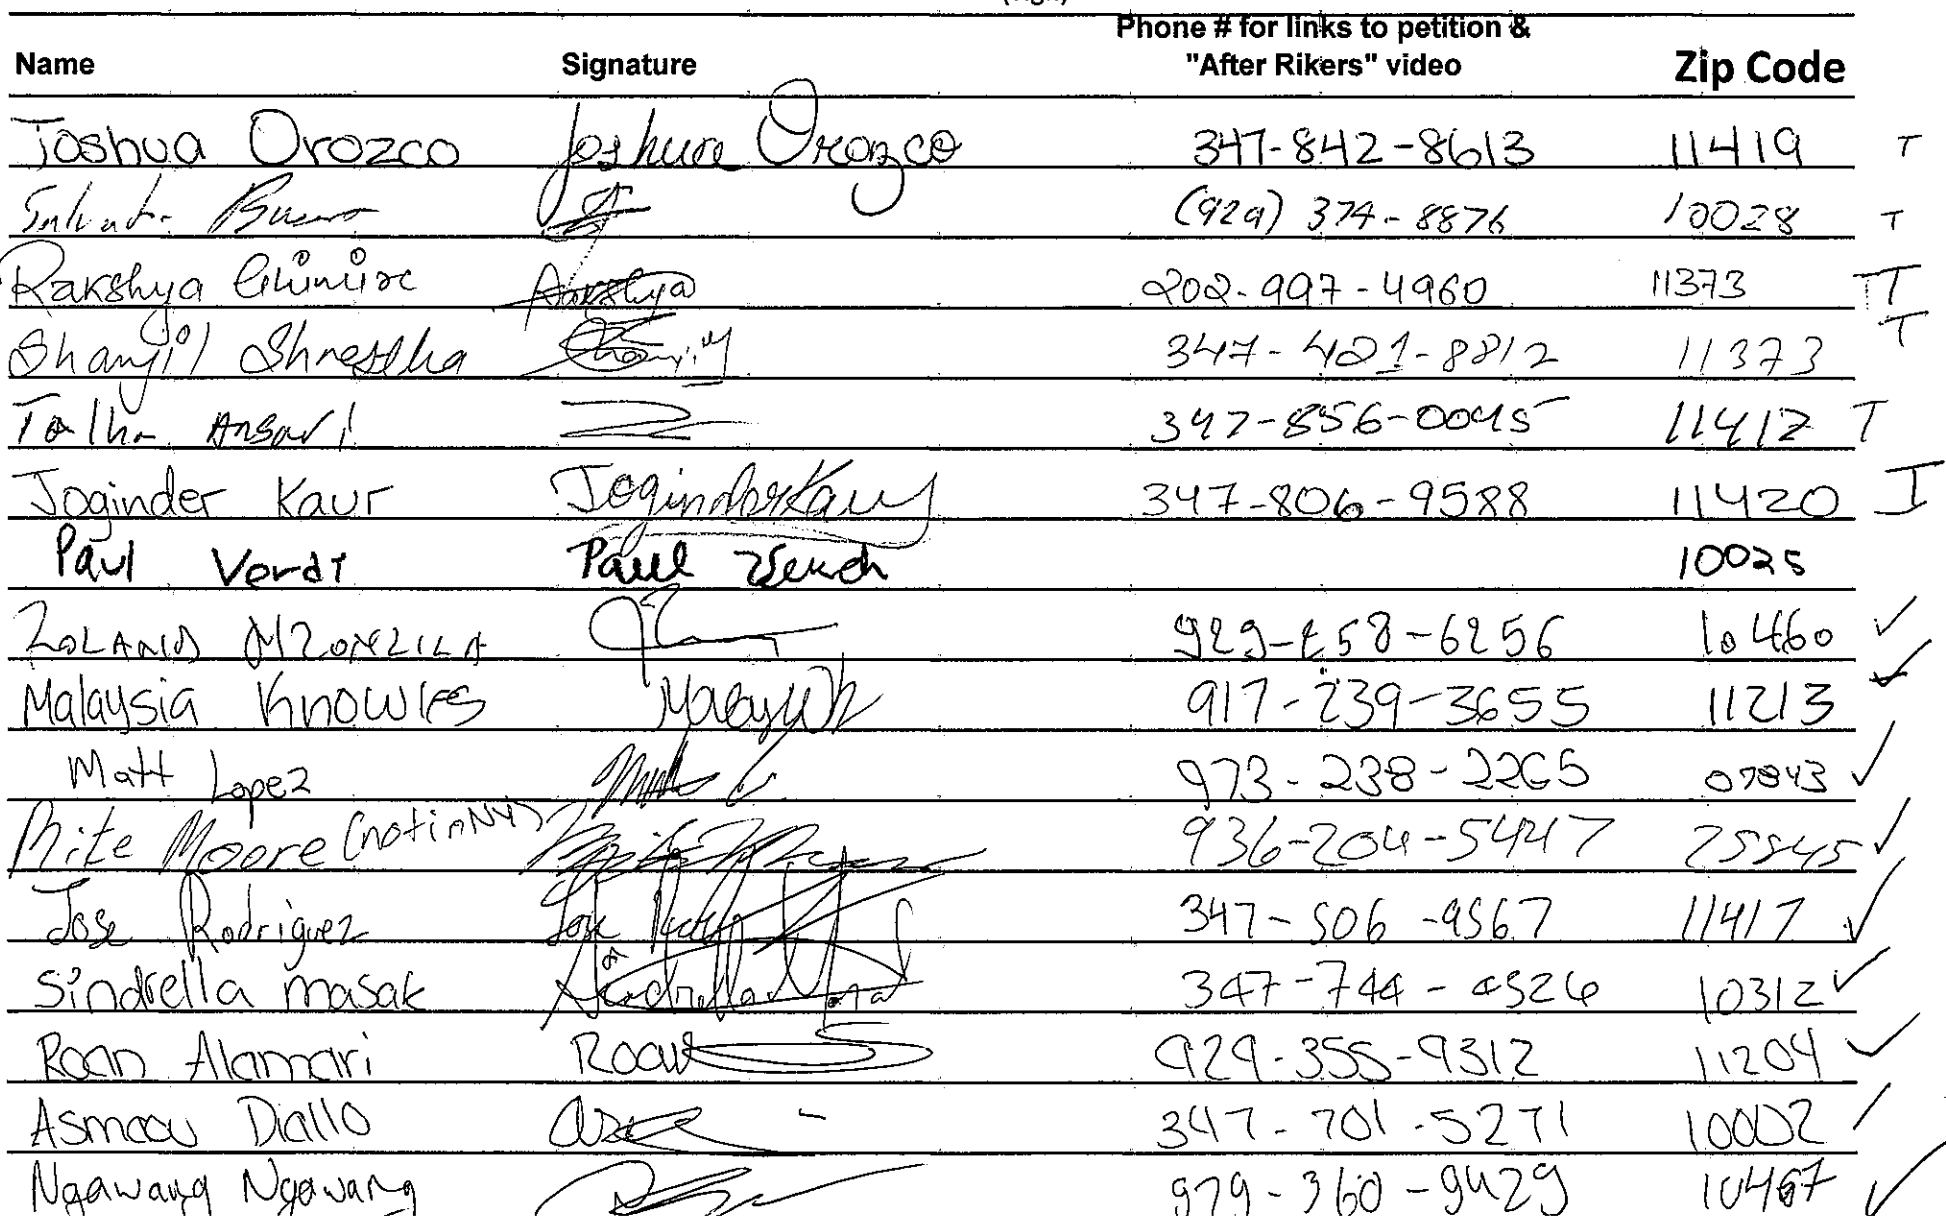 Phone # for links to petition &
Name Signature "After Rikers" video Zip Code
Joshua Orozco Joshua Orozco 347-842-8613 11419 T
(929) 374-8876 10028 T
Rakshya Ghimire Rakshya 202-997-4960 11373 TT
Shanjil Shrestha 347-421-8812 11373 T
Talha Ansari 347-856-0045 11412 T
Joginder Kaur Joginder Kaur 347-806-9588 11420 I
Paul Verdi Paul 10025
929-258-6256 10460 ✓
Malaysia Knowles 917-239-3655 11213 ✓
Matt Lopez 973-238-2265 07843 ✓
Moore (not in NY) 936-204-5447 ✓
Jose Rodriguez Jose 347-506-9567 11417 ✓
Sindrella masak Sindrella Masak 347-744-4326 10312 ✓
Roan Alamari Roan 929-355-9312 11204 ✓
Asmaou Diallo 347-701-5271 10002 /
Ngawang Ngawang 929-360-9429 10467 ✓